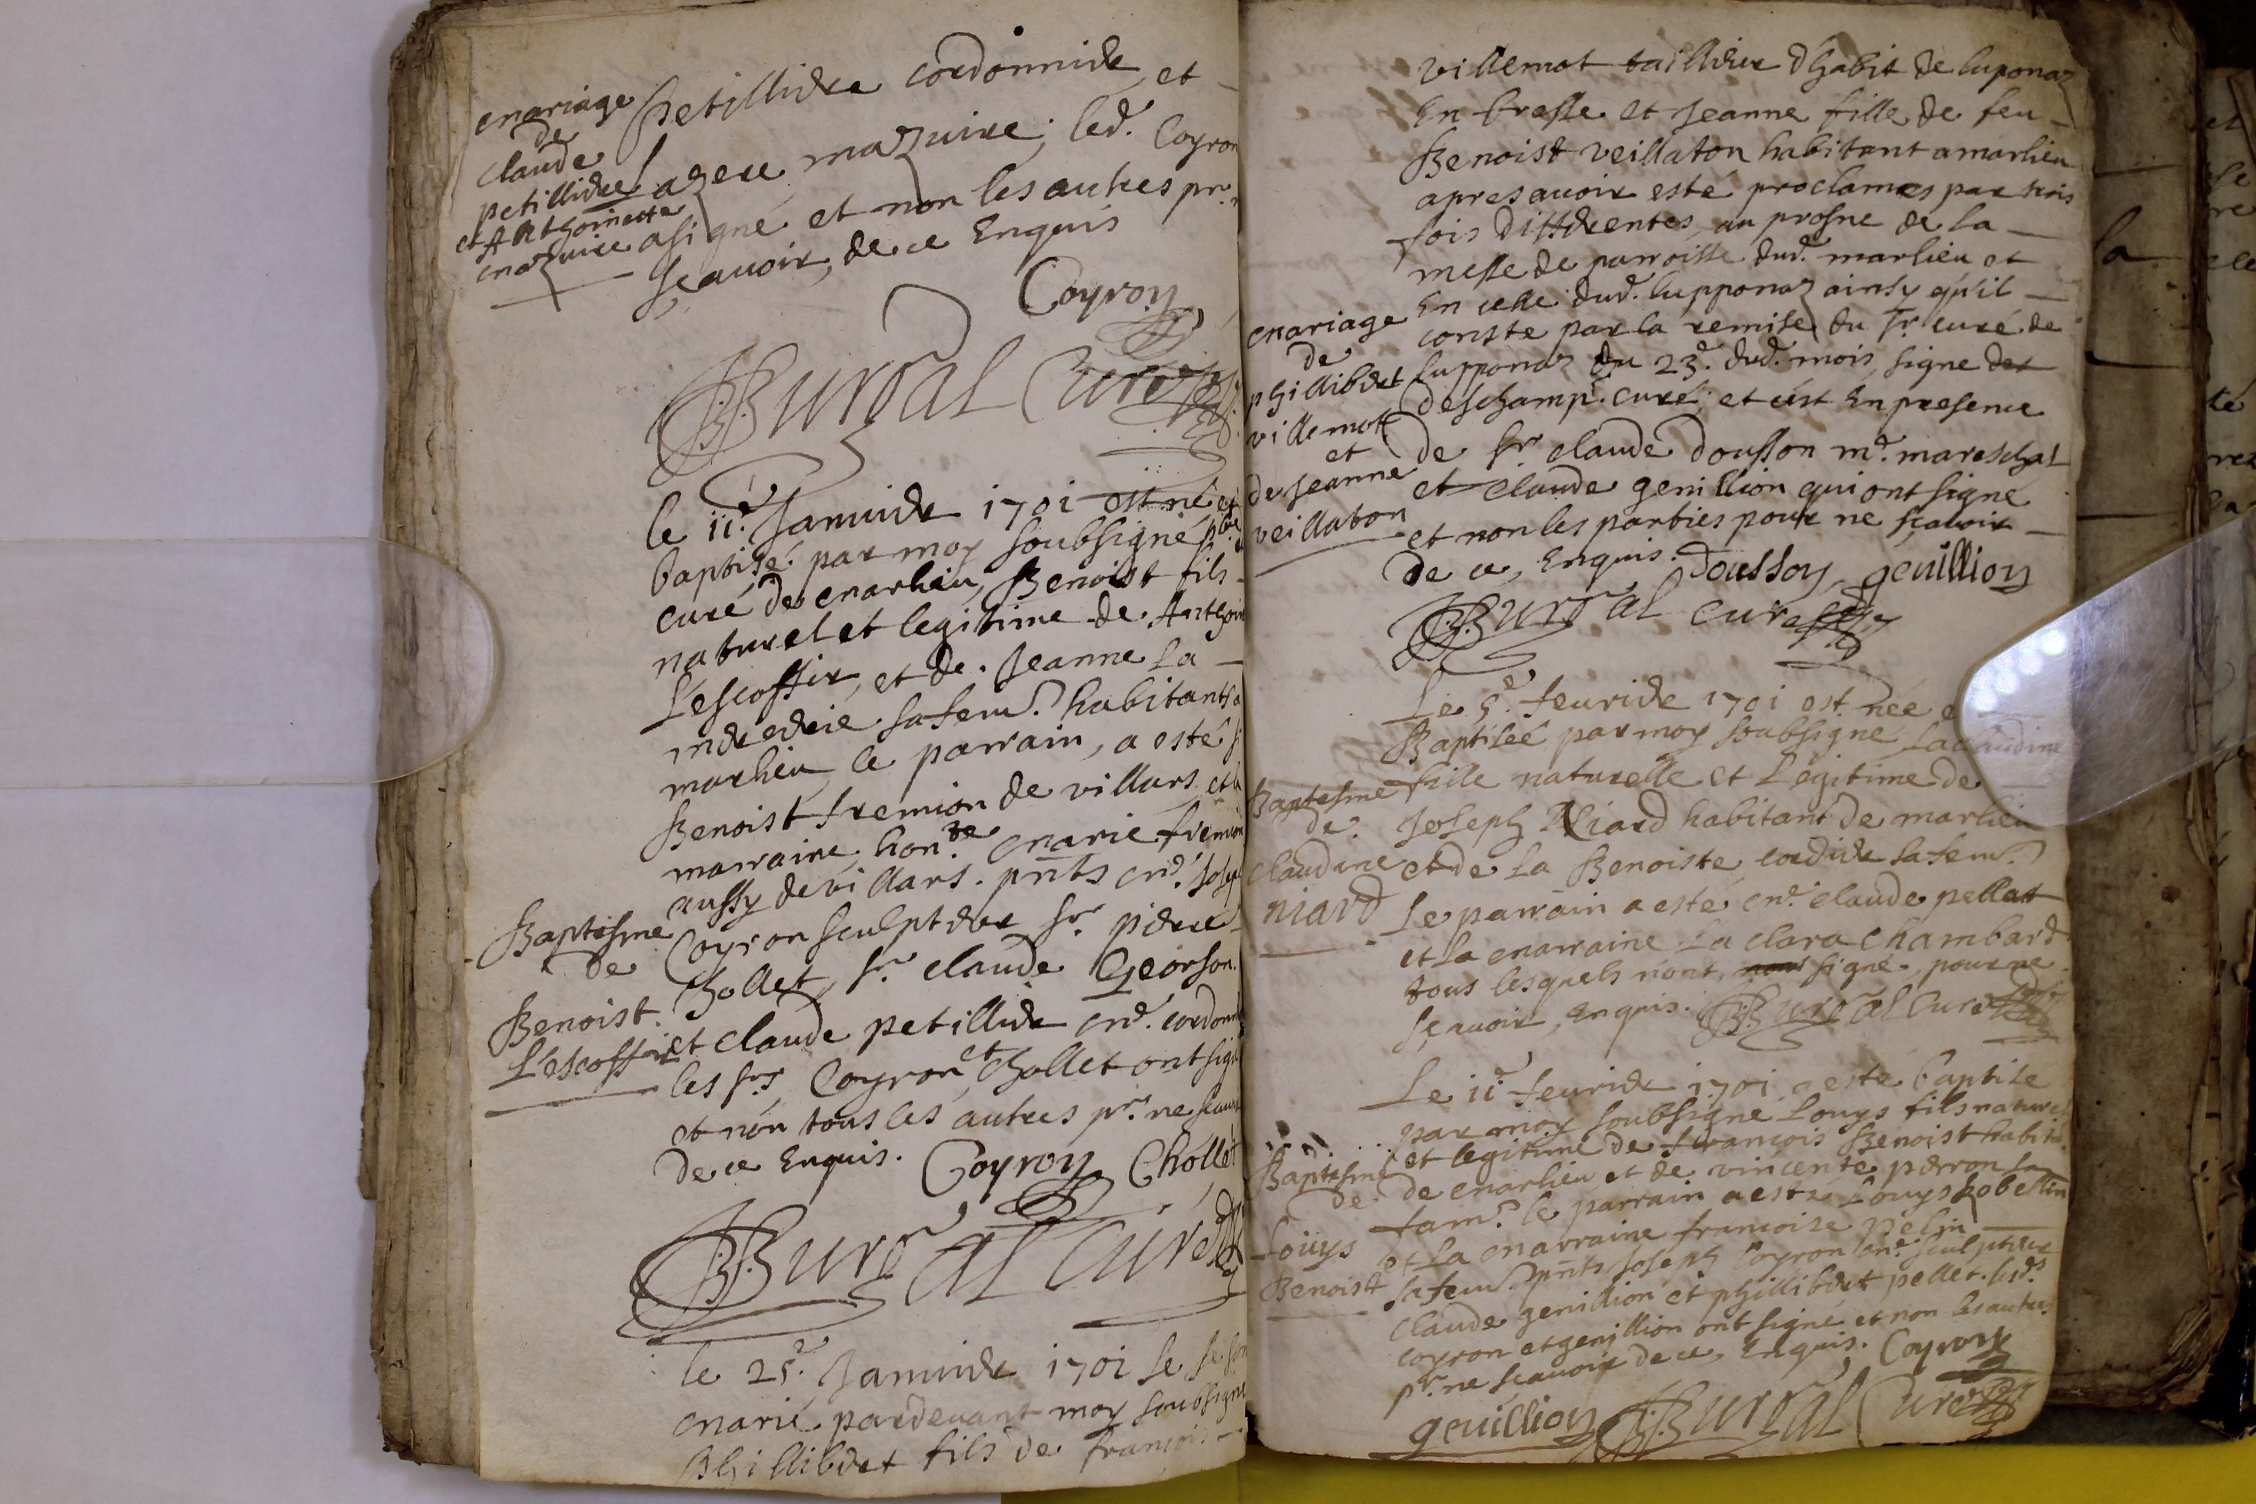 mariage
de
claude
petillier
et Anthoinette
mazuire
petillier cordonnier et
Lazere mazuire, led. Coyron
a signé et non les autres pnts
sçavoir, de ce Enquis
Coyron
Burdal Curé
le 11e Januier 1701 est né et
baptisé par moy soubsigné ptre
curé de marlieu, Benoist fils
naturel et legitime de Anthoine
L'escoffier, et de Jeanne La
sa fem. habitants a
marlieu, le parrain, a esté
Benoist fremion de villars et la
marraine, hon.ble marie fremion
aussy de villars. pnts Me. Joseph
Baptesme
de
Benoist
L'escoffier
Coyron sculpteur sr. pierre
Chollet, sr claude Georson
et claude petillier me. cordonnier
les srs Coyron et Chollet ont signé
et non tous les autres pnts ne sçauoir
de ce Enquis. Coyron Chollet
Burdal Curé
le 25e. Januier 1701 se
marié pardeuant moy soubsigné
Phillibert fils de françois
villemot taillieur d'habit de luponaz
En bresse et Jeanne fille de feu
Benoist veillaton habitant a marlieu
apres auoir esté proclames par trois
fois differentes, au prosne de la
messe de parroisse dud. marlieu et
En celle dud. lupponaz ainsy qu'il
conste par la remise du sr. curé de
lupponaz du 23e. dud. mois, signe
deschamp. curé, et c'est En presence
de sr claude dousson md. mareschal
et claude genillion qui ont signé
et non les parties pour ne sçauoir
de ce, Enquis. Dousson, genillion
Burdal curé
mariage
de
phillibert
villemot
et
de Jeanne
veillaton
Le 5e. feurier 1701 est née
Baptisée par moy soubsigne la claudine
fille naturelle et Légitime de
Joseph Niard habitant de marlieu
et de La Benoiste cordier sa fem.
Le parrain a esté me. claude pellet
et La marraine La clara chambard
tous lesquels n'ont signé, pour ne
sçauoir, Enquis. Burdal Curé
Baptesme
de
claudine
niard
Le 11e feurier 1701 a este baptise
par moy soubsigné Louys fils naturel
et legitime de francois Benoist habitt.
de marlieu et de vincente perron sa
fam. le parrain a esté Louys
et La marraine francoise pelin
sa fem. pnts Joseph Coyron me. sculpteur
claude genillion et phillibert pellet. lesds.
coyron et genillion ont signé et non les autres
pnts ne scauoir de ce, Enquis. Coyron
genillion Burdal Curé
Baptisme
de
Louys
Benoist